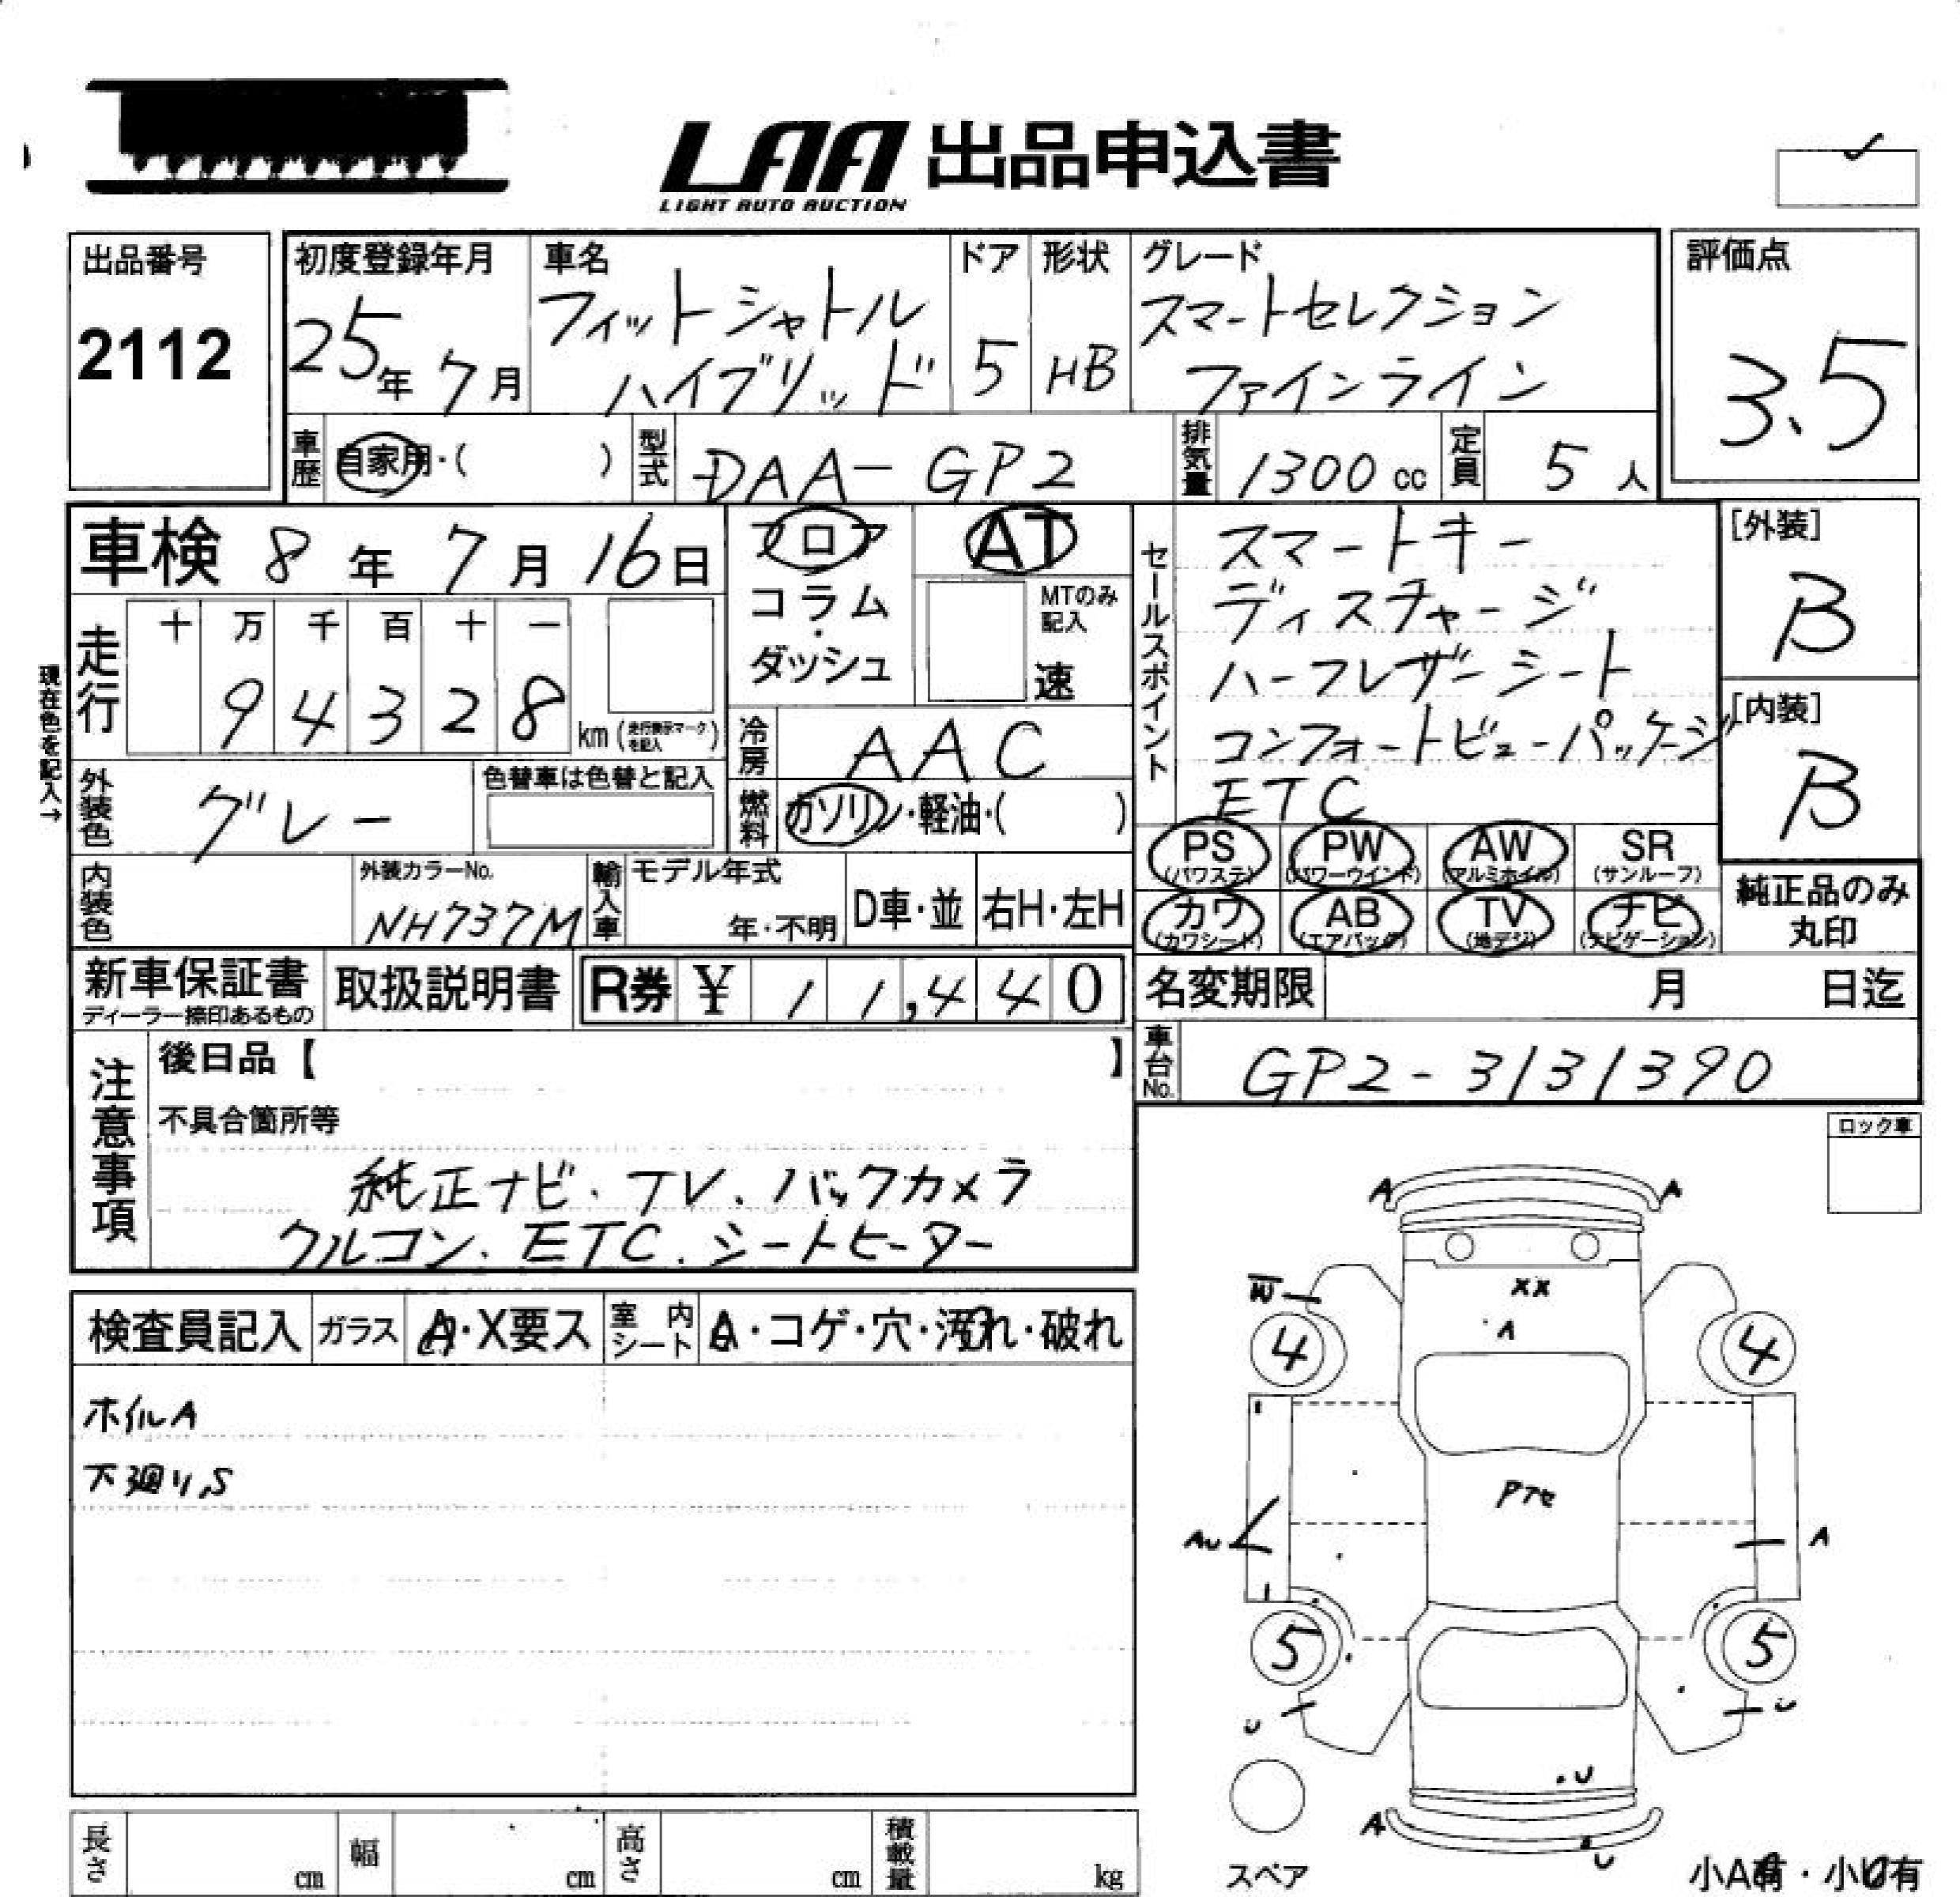 LAA 出品申込書
LIGHT AUTO AUCTION
出品番号
2112
初度登録年月
25年 7月
車名
フィットシャトル
ハイブリッド
ドア
5
形状
HB
グレード
スマートセレクション
ファインライン
評価点
3.5
車歴 自家用・( )
型式 DAA-GP2
排気量 1300 cc
定員 5 人
車検 8年 7月 16日
フロア
コラム
・
ダッシュ
AT
MTのみ
記入
速
走行
十 万 千 百 十 一
9 4 3 2 8 km (走行表示マークを記入)
現在色を記入→
冷房 AAC
外装色 グレー
色替車は色替と記入
燃料 ガソリン・軽油・( )
内装色
外装カラーNo.
NH737M
輸入車
モデル年式
年・不明
D車・並
右H・左H
セールスポイント
スマートキー
ディスチャージ
ハーフレザーシート
コンフォートビューパッケージ
ETC
[外装]
B
[内装]
B
PS (パワステ) PW (パワーウインド) AW (アルミホイル) SR (サンルーフ)
カワ (カワシート) AB (エアバッグ) TV (地デジ) ナビ (ナビゲーション)
純正品のみ
丸印
新車保証書
ディーラー捺印あるもの
取扱説明書
R券 ¥ 11,440
名変期限 月 日迄
車台No. GP2-3131390
注意事項
後日品【 】
不具合箇所等
純正ナビ、TV、バックカメラ
クルコン、ETC、シートヒーター
ロック車
検査員記入 ガラス A・X要ス 室内シート A・コゲ・穴・汚れ・破れ
ホイルA
下廻りS
A A
W
XX
A
4 4
PTセ
AU A
5 5
U U
U
A
U
スペア
小A有・小U有
長さ cm 幅 cm 高さ cm 積載量 kg